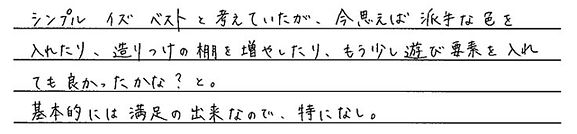 シンプル イズ ベストと考えていたが、今思えば派手な色を
入れたり、造りつけの棚を増やしたり、もう少し遊び要素を入れ
ても良かったかな?と。
基本的には満足の出来なので、特になし。